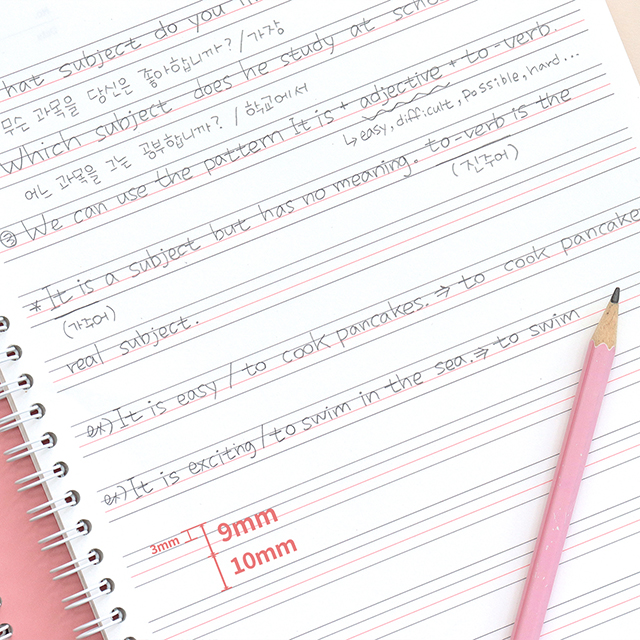 hat subject do you
무슨 과목을 당신은 좋아합니까? / 가장
Which subject does he study at scho
어느 과목을 그는 공부합니까? / 학교에서
③ We can use the pattern It is + adjective + to-verb.
↳ easy, difficult, possible, hard...
* It is a subject but has no meaning. to-verb is the
(가주어) (진주어)
real subject.
ex) It is easy / to cook pancakes. ⇒ to cook pancake
ex) It is excitng / to swim in the sea. ⇒ to swim
3mm 9mm
10mm